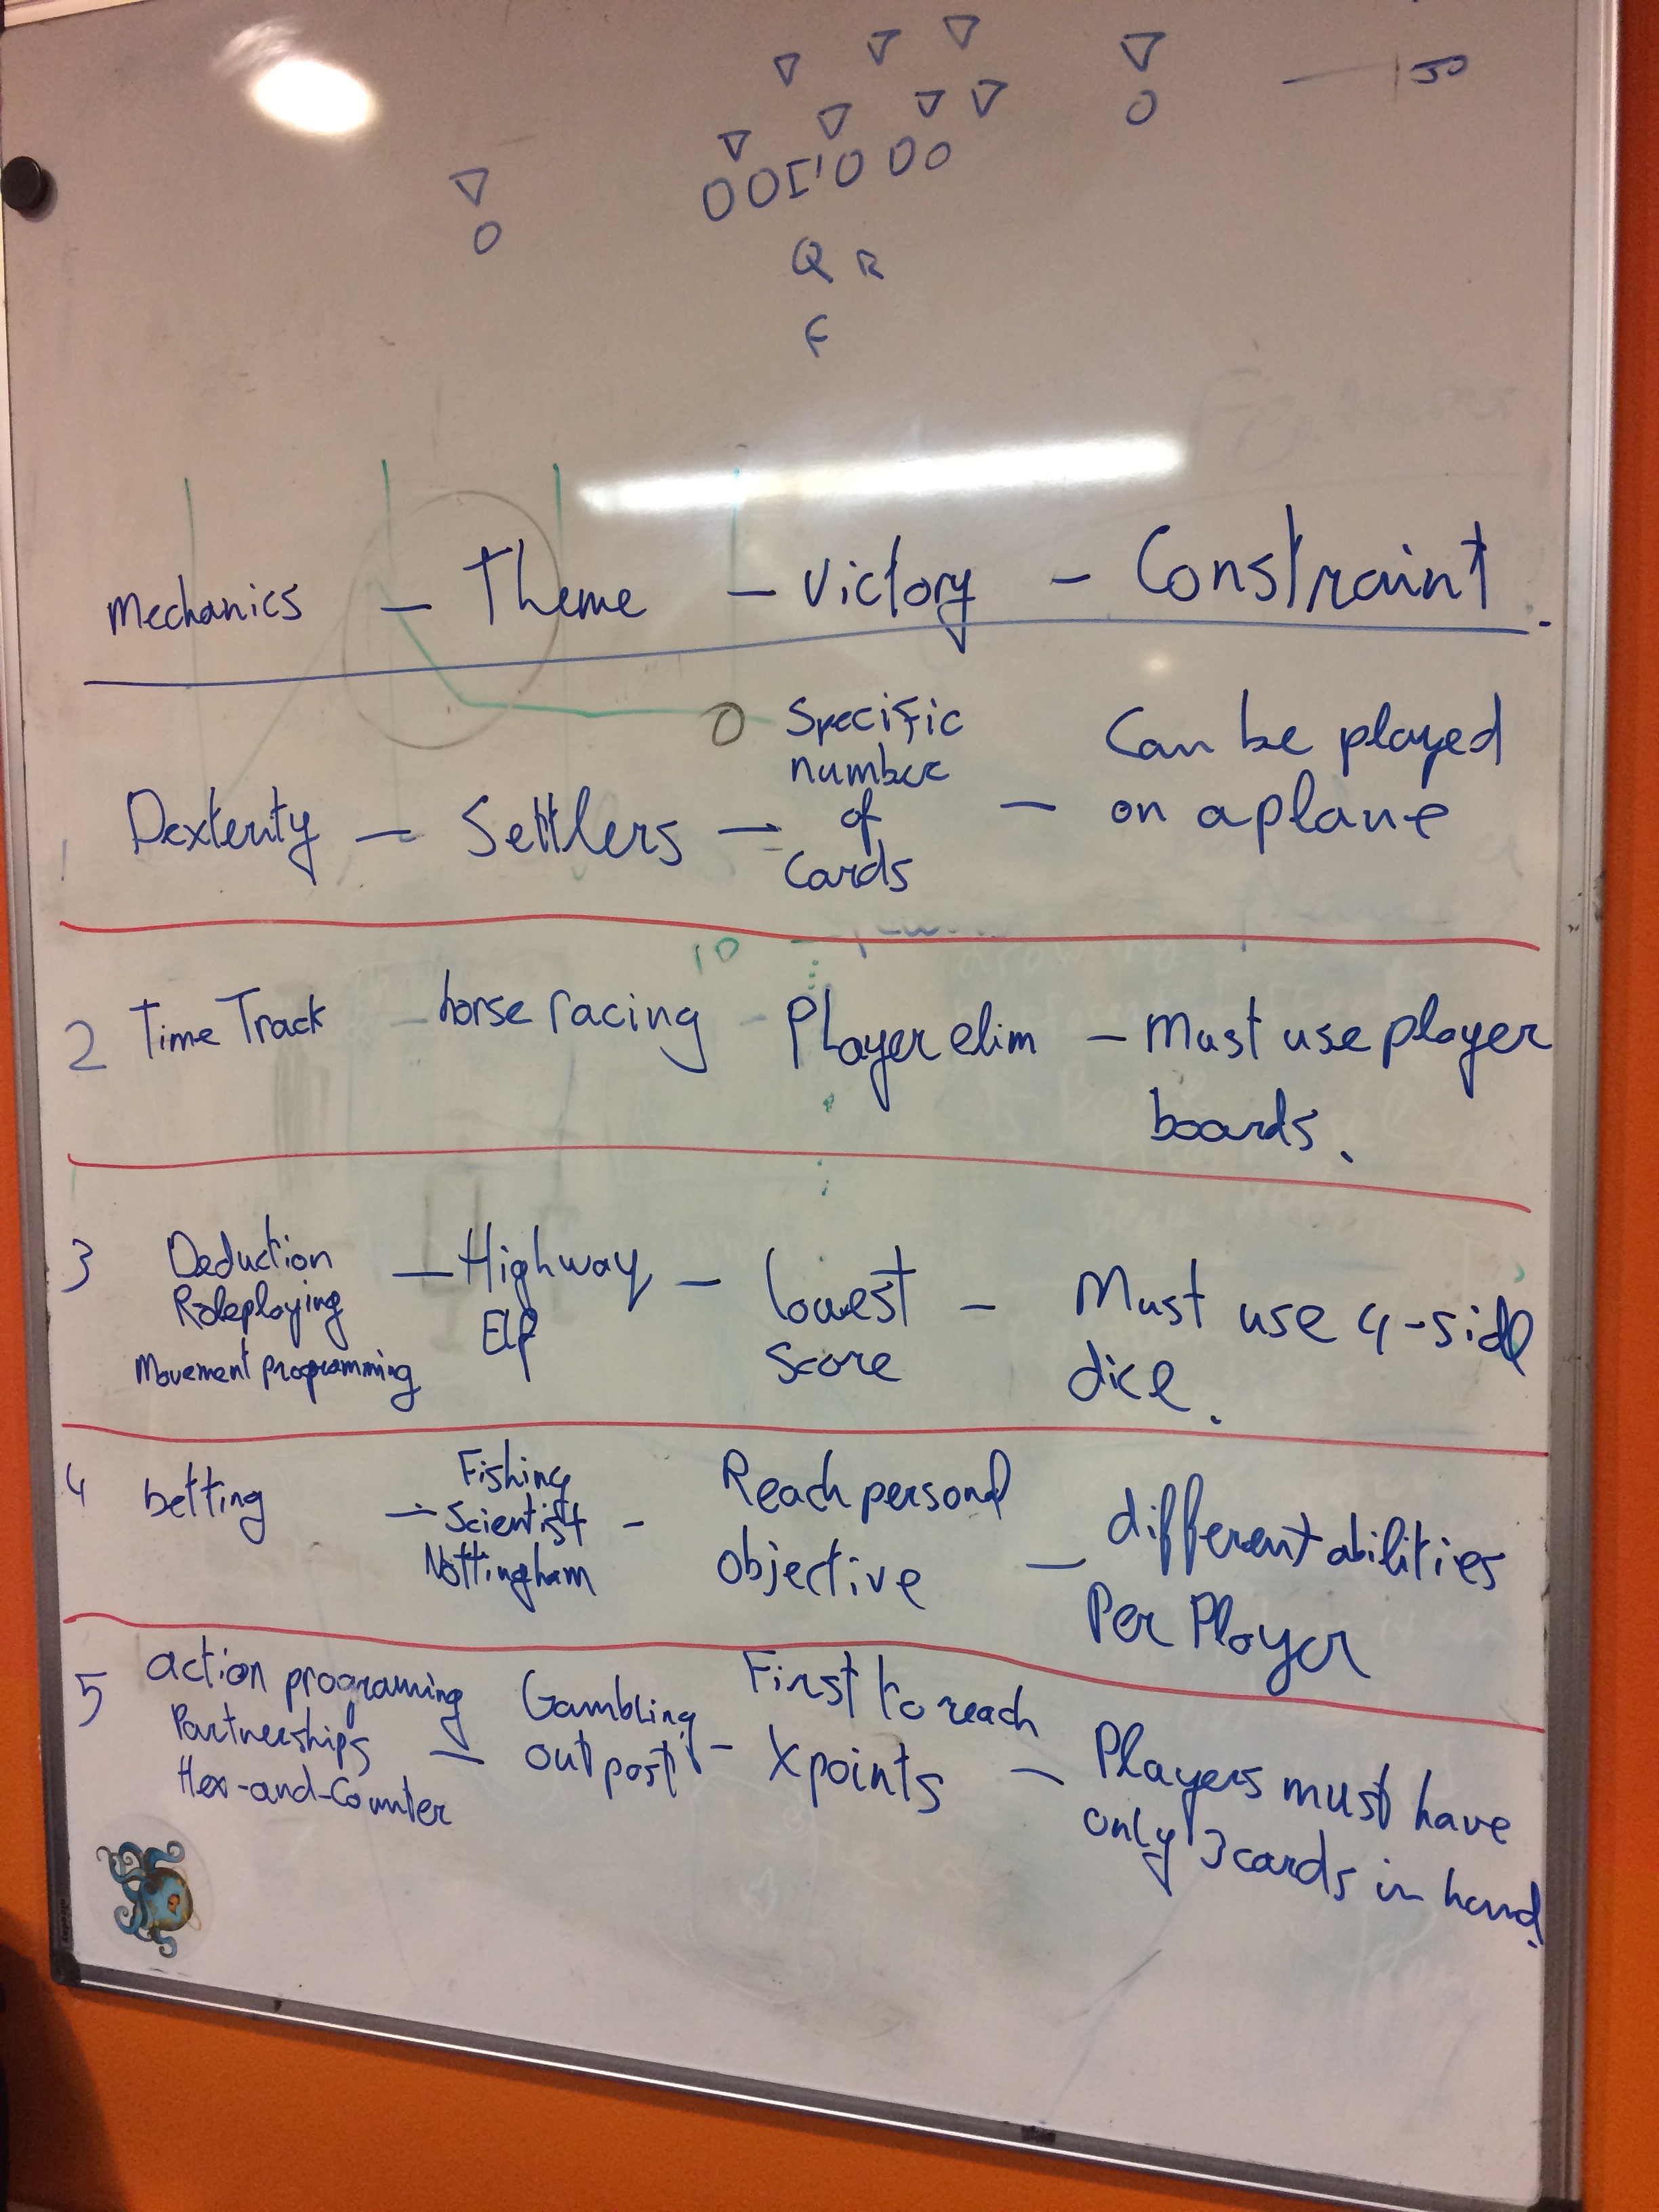 50
O O O O O
Q R
F
O
O
Mechanics - Theme - Victory - Constraint.
1 Dexterity - Settlers - Specific number of Cards - Can be played on a plane
10
2 Time Track - horse racing - Player elim - Must use player boards.
3 Deduction Roleplaying Movement programming - Highway Elf - lowest Score - Must use 4-side dice.
4 betting - Fishing Scientist Nottingham - Reach personal objective - different abilities Per Player
5 action programing Partnerships Hex-and-Counter - Gambling outpost - First to reach X points - Players must have only 3 cards in hand.